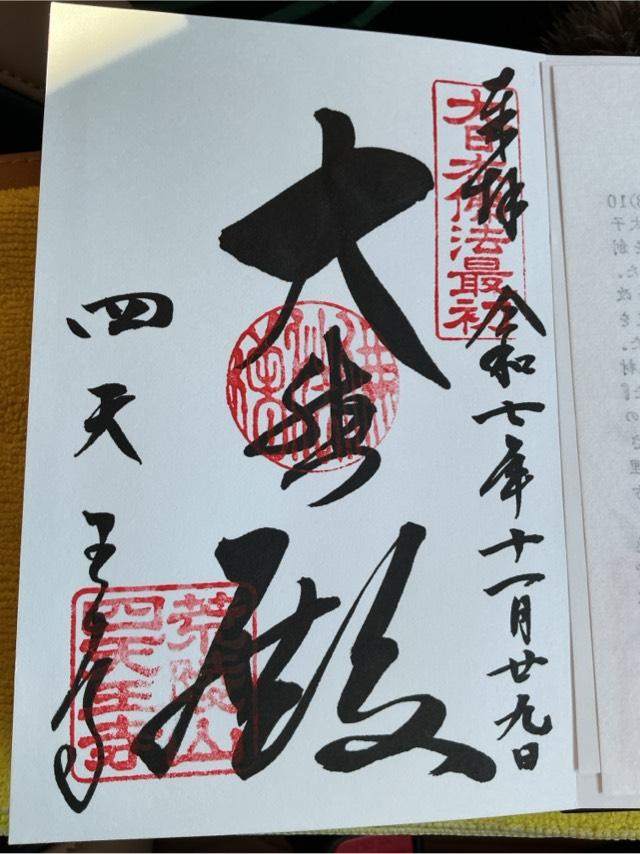 奉拝 令和七年十一月廿九日
大日本佛法最初
大悲殿
四天王寺
荒陵山
四天王寺